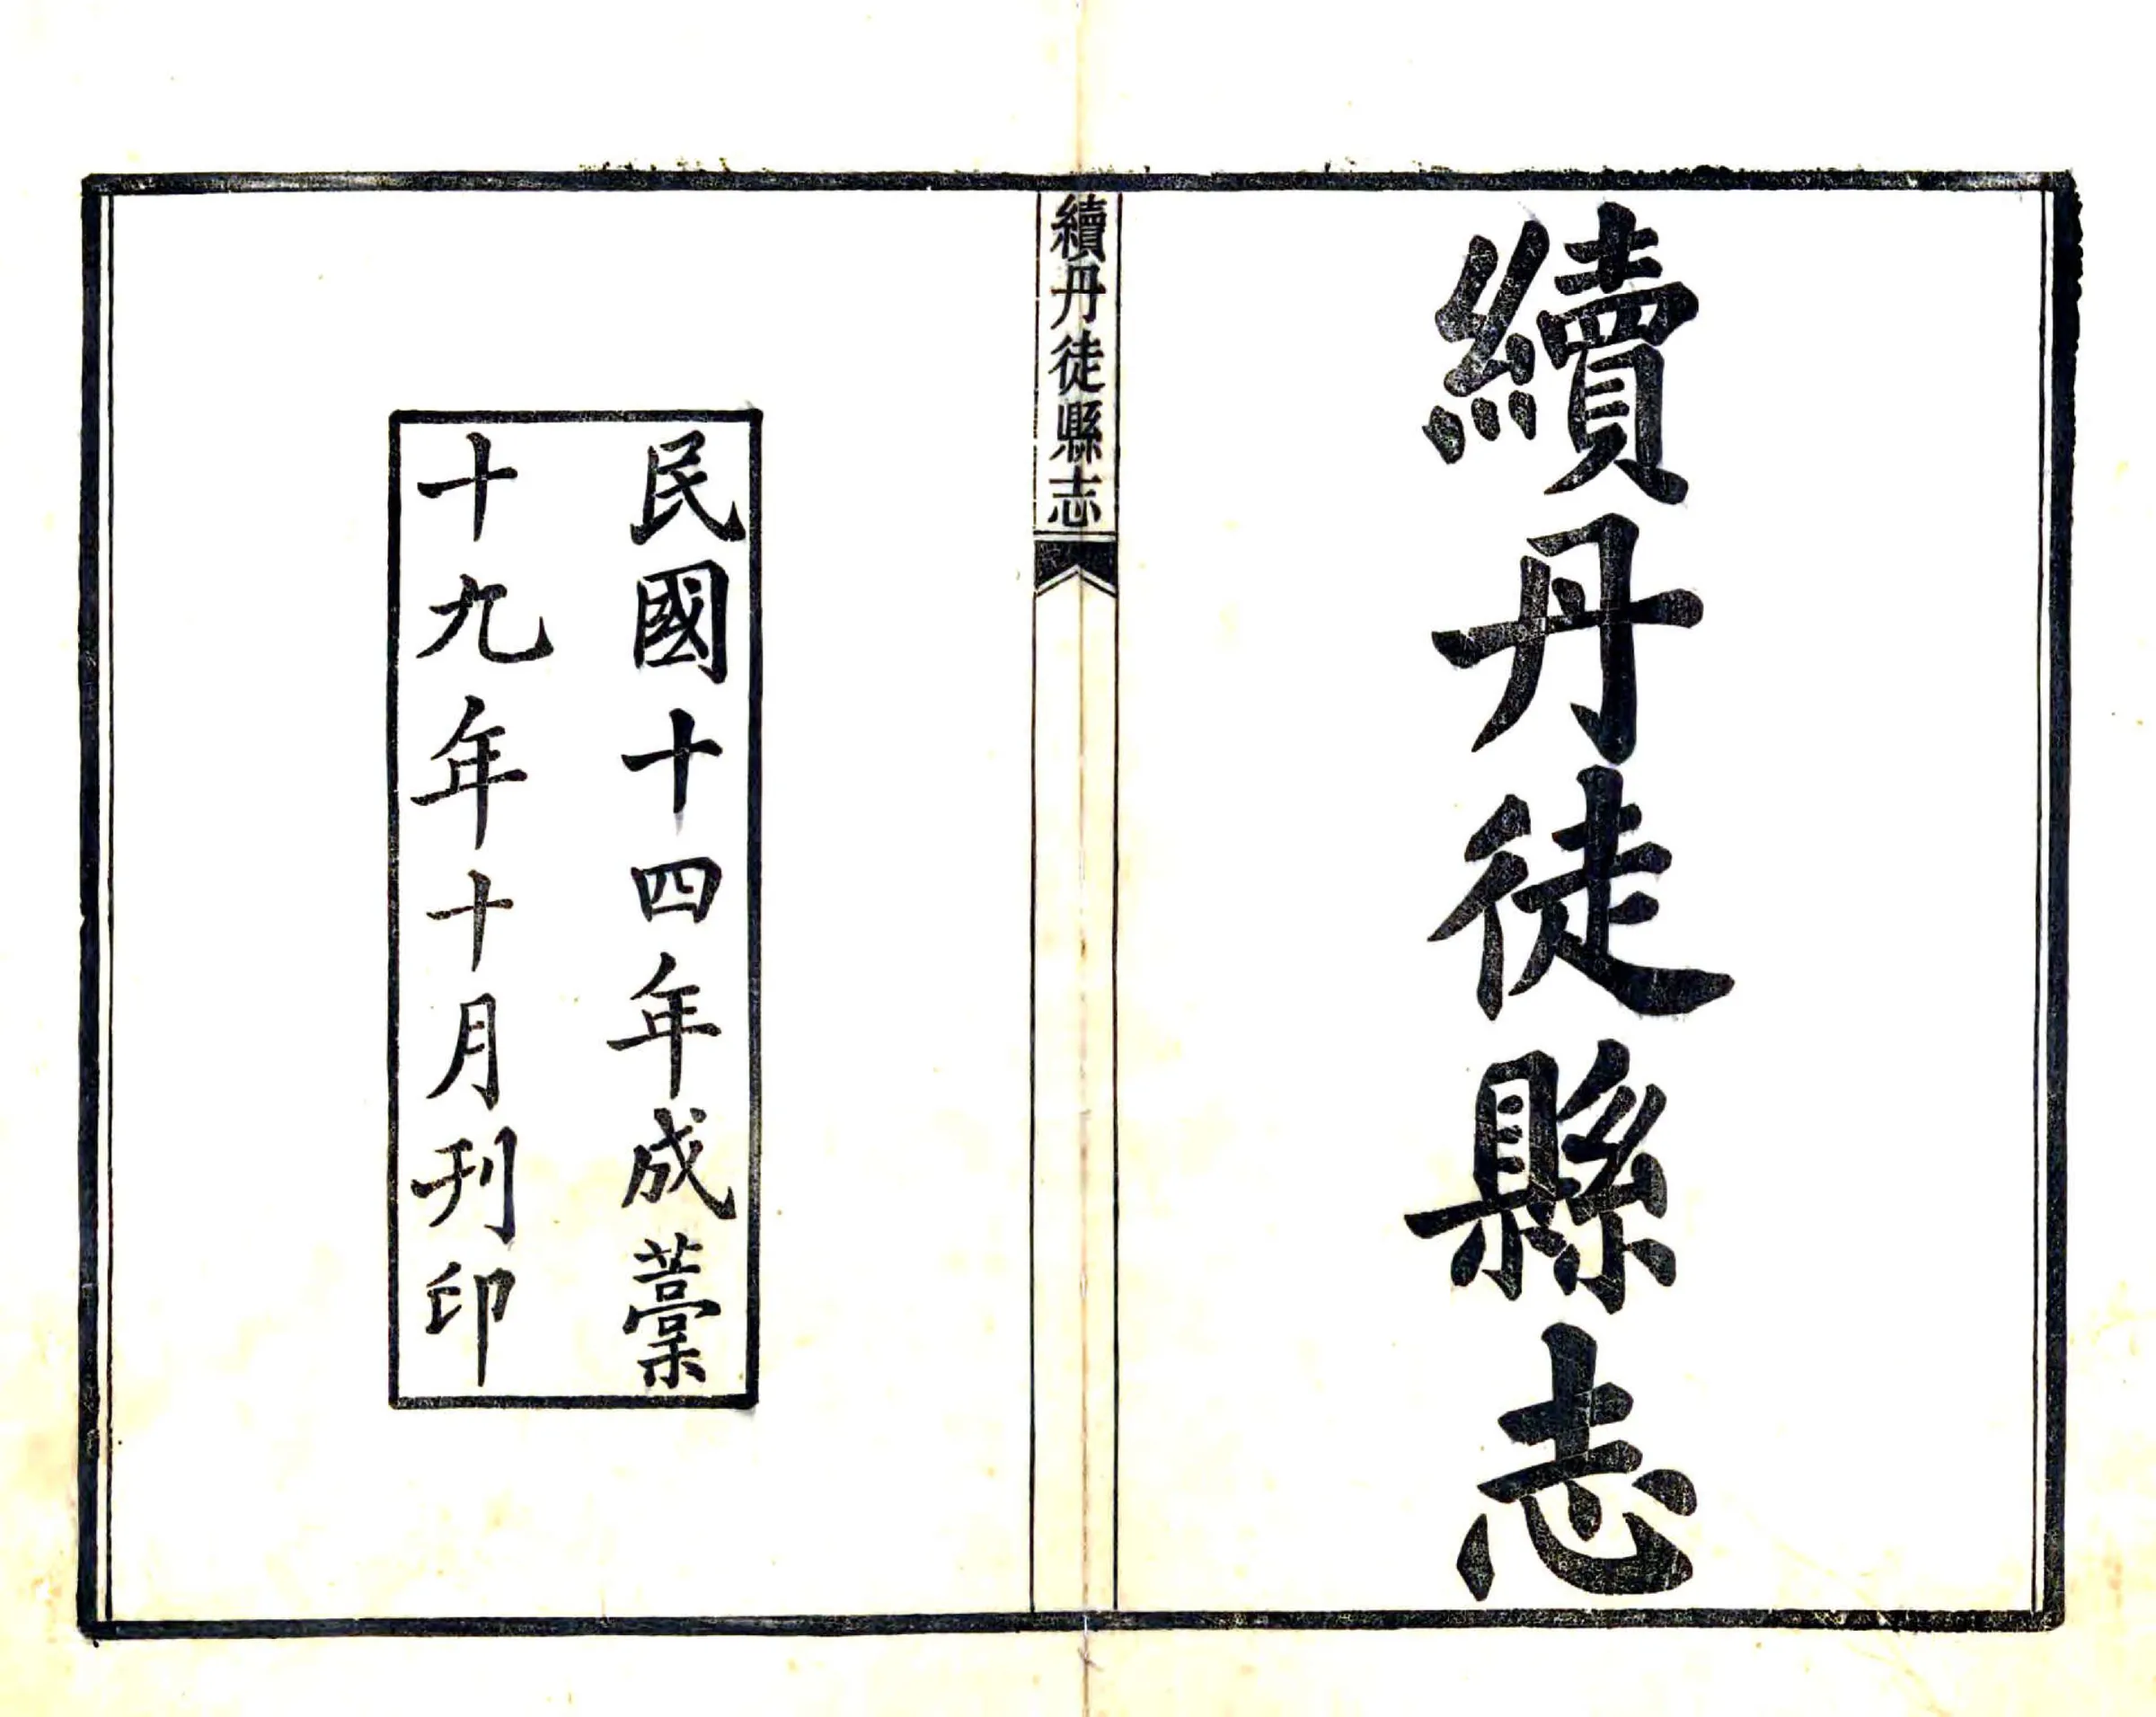 續丹徒縣志
續丹徒縣志
民國十四年成藁
十九年十月刊印